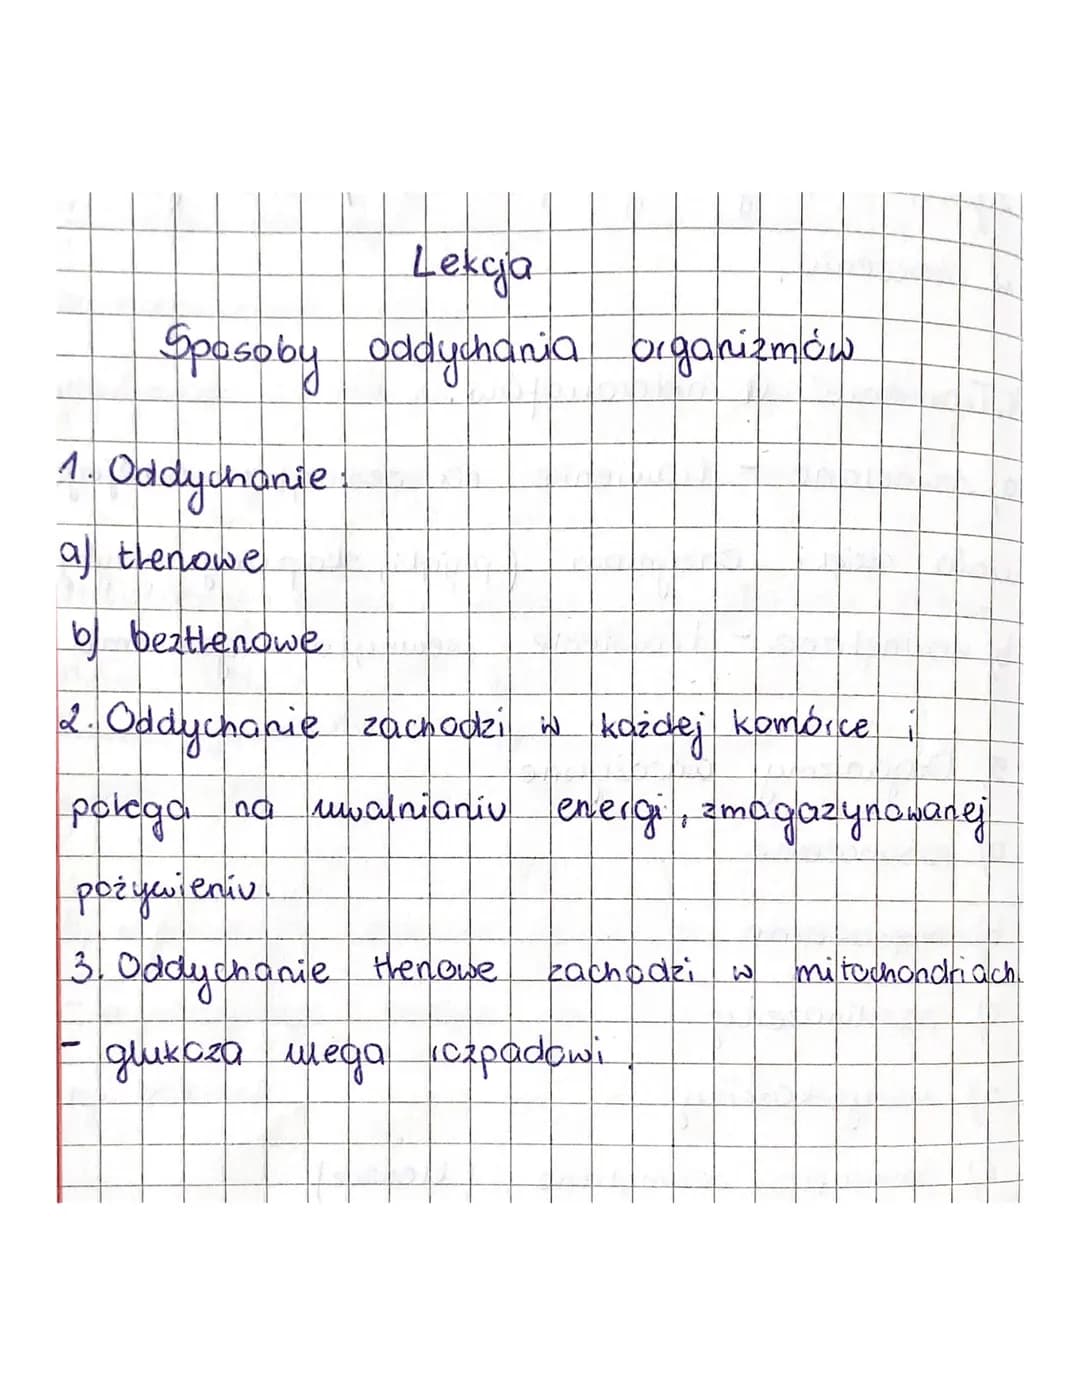 Lekcja
Sposoby oddychania organizmów
1. Oddychanie:
a) tlenowe
b) beztlenowe
2. Oddychanie zachodzi w każdej komórce i
polega na uwalnianiu energi, zmagazynowanej
pożywieniu.
3. Oddychanie tlenowe zachodzi w mitochondriach.
- glukoza ulega rozpadowi.